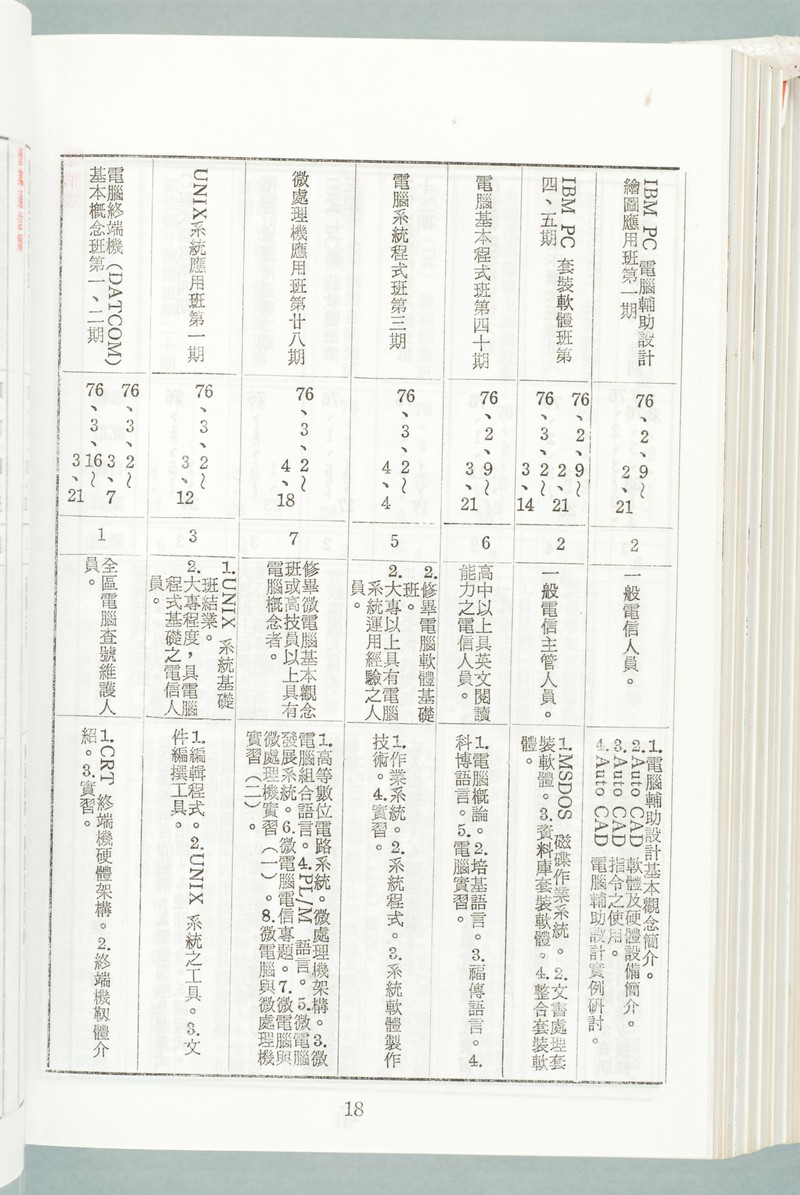 IBM PC 電腦輔助設計
繪圖應用班第一期
76、2、9～
2、21
2
一般電信人員。
1.電腦輔助設計基本觀念簡介。
2.Auto CAD 軟體及硬體設備簡介。
3.Auto CAD 指令之使用。
4.Auto CAD 電腦輔助設計實例研討。
IBM PC 套裝軟體班第
四、五期
76、2、9～
2、21
76、3、2～
3、14
2
一般電信主管人員。
1.MSDOS 磁碟作業系統。2.文書處理套
裝軟體。3.資料庫套裝軟體。4.整合套裝軟
體。
電腦基本程式班第四十期
76、2、9～
3、21
6
高中以上具英文閱讀
能力之電信人員。
1.電腦概論。2.培基語言。3.福傳語言。4.
科博語言。5.電腦實習。
電腦系統程式班第三期
76、3、2～
4、4
5
2.修畢電腦軟體基礎
班。
2.大專以上具有電腦
系統運用經驗之人
員。
1.作業系統。2.系統程式。3.系統軟體製作
技術。4.實習。
微處理機應用班第廿八期
76、3、2～
4、18
7
修畢微電腦基本觀念
班或高技員以上具有
電腦概念者。
1.高等數位電路系統。微處理機架構。3.微
電腦組合語言。4.PL/M 語言。5.微電腦
發展系統。6.微電腦電信專題。7.微電腦與
微處理機實習（一）。8.微電腦與微處理機
實習（二）。
UNIX系統應用班第一期
76、3、2～
3、12
3
1.UNIX 系統基礎
班結業。
2.大專程度，具電腦
程式基礎之電信人
員。
1.編輯程式。2.UNIX 系統之工具。3.文
件編撰工具。
電腦終端機（DATCOM）
基本概念班第一、二期
76、3、2～
3、7
76、3、16～
3、21
1
全區電腦查號維護人
員。
1.CRT 終端機硬體架構。2.終端機靱體介
紹。3.實習。
18